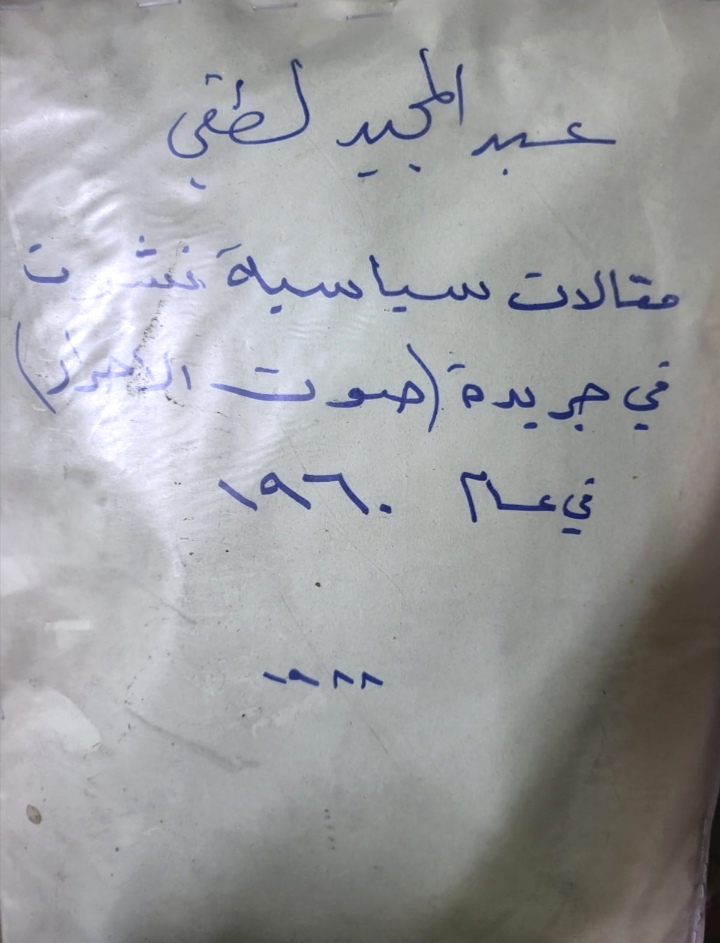 عبد المجيد لطفي
مقالات سياسية نشرت
في جريدة (صوت الاحرار)
في عام ١٩٦٠
١٩٨٨